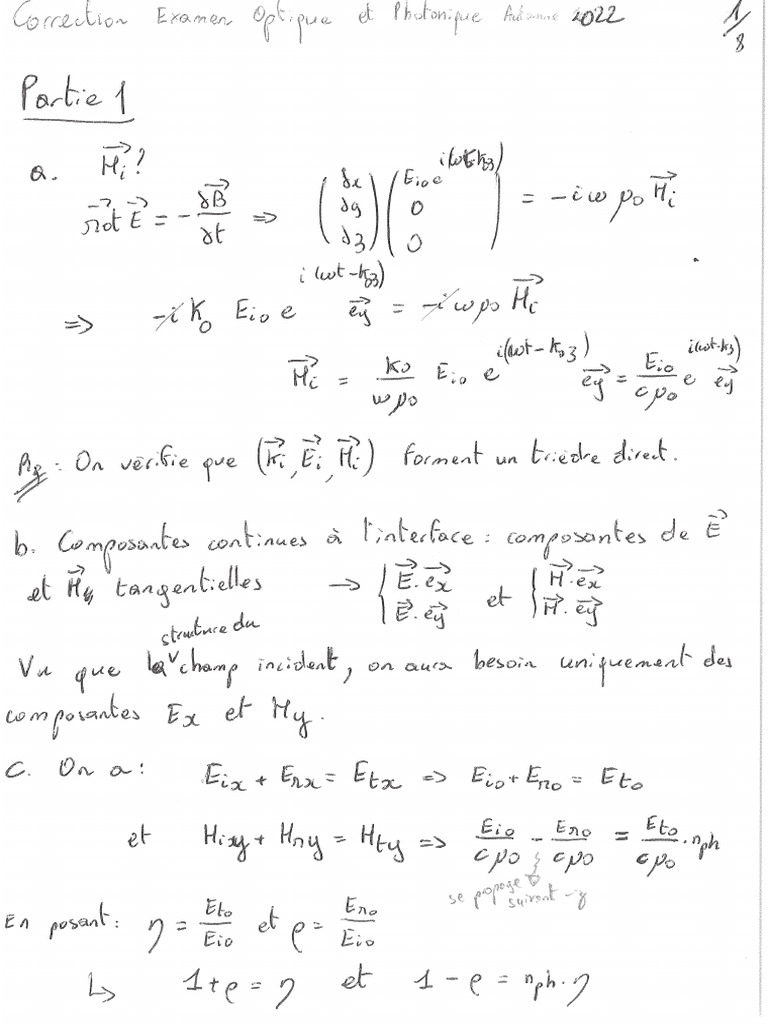 Correction Examen Optique et Photonique Automne 2022 1/8
Partie 1
a. $\vec{H_i}$ ?
$\vec{rot}\,\vec{E} = -\frac{\partial \vec{B}}{\partial t} \Rightarrow \begin{pmatrix} \partial x \\ \partial y \\ \partial z \end{pmatrix} \begin{pmatrix} E_{i0} e^{i(\omega t - kz)} \\ 0 \\ 0 \end{pmatrix} = -i\omega\mu_0 \vec{H_i}$
$\Rightarrow -i k_0 E_{i0} e^{i(\omega t - k_0 z)} \vec{e_y} = -i\omega\mu_0 \vec{H_i}$
$\vec{H_i} = \frac{k_0}{\omega\mu_0} E_{i0} e^{i(\omega t - k_0 z)} \vec{e_y} = \frac{E_{i0}}{c\mu_0} e^{i(\omega t - kz)} \vec{e_y}$
Rq : On vérifie que $(\vec{k_i}, \vec{E_i}, \vec{H_i})$ forment un trièdre direct.
b. Composantes continues à l'interface : composantes de $\vec{E}$
et $\vec{H}$ tangentielles → $\begin{cases} \vec{E}.\vec{e_x} \\ \vec{E}.\vec{e_y} \end{cases}$ et $\begin{cases} \vec{H}.\vec{e_x} \\ \vec{H}.\vec{e_y} \end{cases}$
Vu que la structure du champ incident, on aura besoin uniquement des
composantes Ex et Hy.
C. On a : $E_{ix} + E_{rx} = E_{tx} \Rightarrow E_{i0} + E_{r0} = E_{t0}$
et $H_{iy} + H_{ry} = H_{ty} \Rightarrow \frac{E_{i0}}{c\mu_0} - \frac{E_{r0}}{c\mu_0} = \frac{E_{t0}}{c\mu_0} . n_{ph}$
se propage suivant -z
En posant : $\eta = \frac{E_{t0}}{E_{i0}}$ et $\rho = \frac{E_{r0}}{E_{i0}}$
↳ $1 + \rho = \eta$ et $1 - \rho = n_{ph} . \eta$